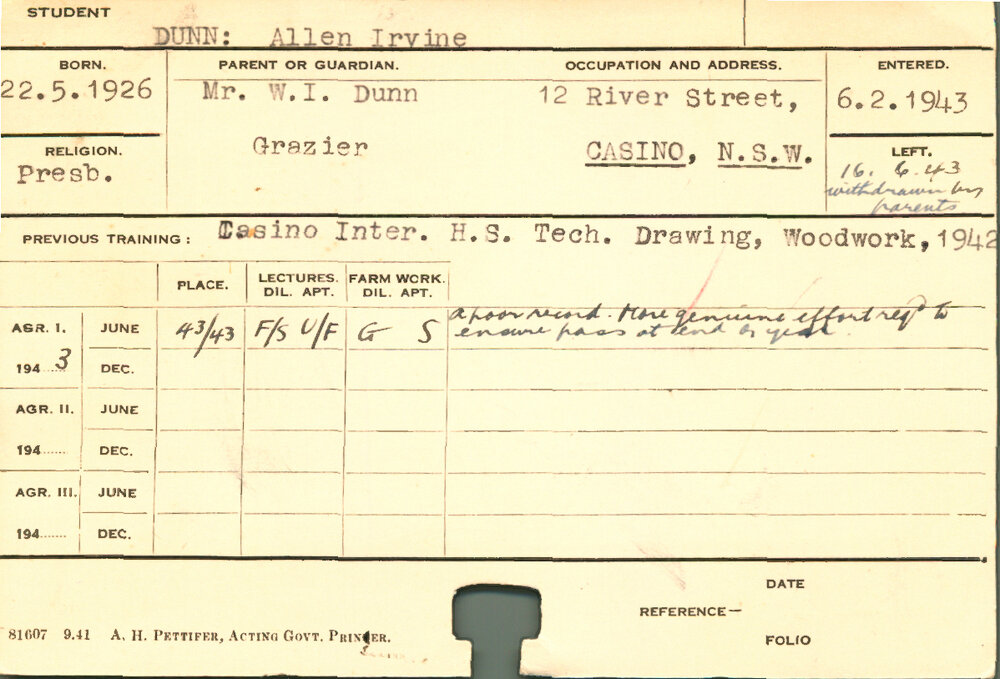 STUDENT
DUNN: Allen Irvine
BORN. PARENT OR GUARDIAN. OCCUPATION AND ADDRESS. ENTERED.
22.5.1926 Mr. W.I. Dunn 12 River Street, 6.2.1943
Grazier CASINO, N.S.W.
RELIGION. LEFT.
Presb. 16. 6.43
withdrawn by
parents
PREVIOUS TRAINING: Casino Inter. H.S. Tech. Drawing, Woodwork, 1942
PLACE. LECTURES. FARM WORK.
DIL. APT. DIL. APT.
AGR. I. JUNE 43/43 F/S U/F G S A poor record. More genuine effort reqd to
ensure pass at end of year.
194 3 DEC.
AGR. II. JUNE
194...... DEC.
AGR. III. JUNE
194...... DEC.
DATE
REFERENCE—
FOLIO
81607 9.41 A. H. PETTIFER, ACTING GOVT. PRINTER.